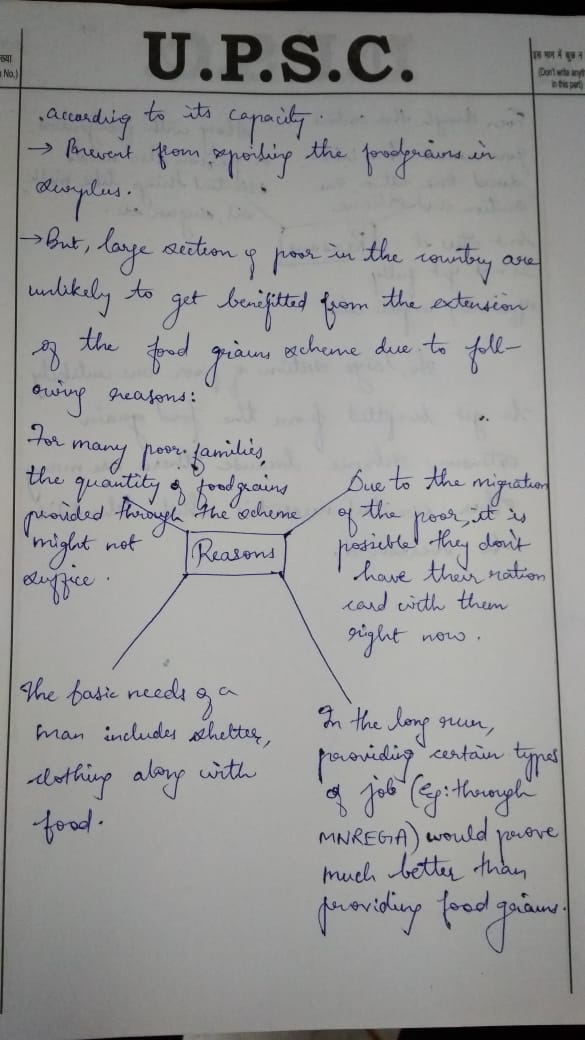 U.P.S.C.
ख्या
No.)
इस भाग में कुछ न
(Don't write anyth
in this part)
according to its capacity.
→ Prevent from spoiling the foodgrains in
surplus.
→ But, large section of poor in the country are
unlikely to get benefitted from the extension
of the food grains scheme due to foll-
owing reasons:
For many poor families,
the quantity of foodgrains
provided through the scheme
might not
suffice.
Due to the migration
of the poor, it is
possible they don't
have their ration
card with them
right now.
Reasons
The basic needs of a
man includes shelter,
clothing along with
food.
In the long run,
providing certain types
of job (eg: through
MNREGA) would prove
much better than
providing food grains.